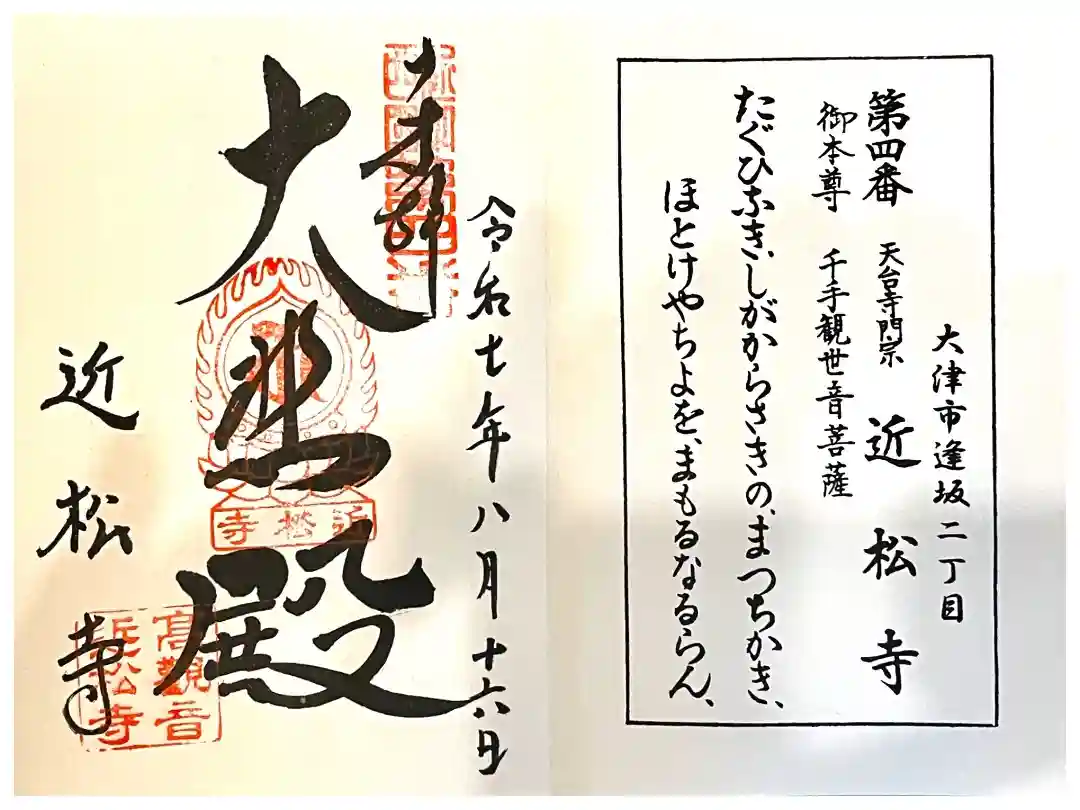 大津市逢坂二丁目
第四番 天台寺門宗 近松寺
御本尊 千手観世音菩薩
たぐひなき、しがからさきの、まつちかき、
ほとけやちよを、まもるなるらん、
奉拝
令和七年八月十六日
大悲殿
近松寺
近松寺
高観音
近松寺